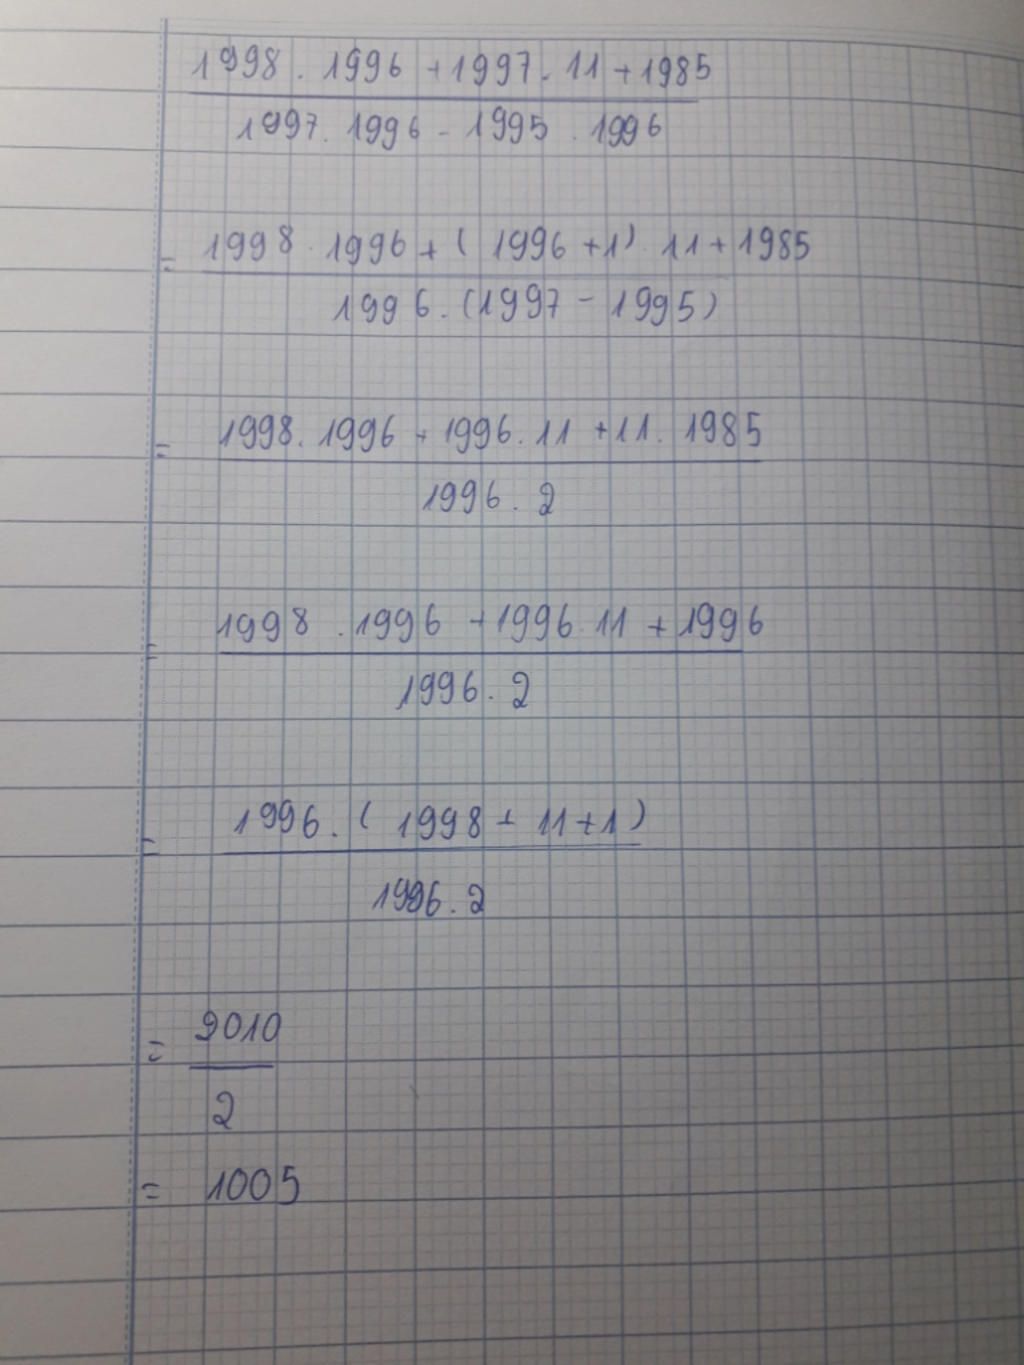 1998 . 1996 + 1997 . 11 + 1985
1997 . 1996 - 1995 . 1996
= 1998 . 1996 + ( 1996 + 1 ) . 11 + 1985
1996 . ( 1997 - 1995 )
= 1998 . 1996 + 1996 . 11 + 11 . 1985
1996 . 2
= 1998 . 1996 + 1996 . 11 + 1996
1996 . 2
= 1996 . ( 1998 + 11 + 1 )
1996 . 2
= 2010
2
= 1005